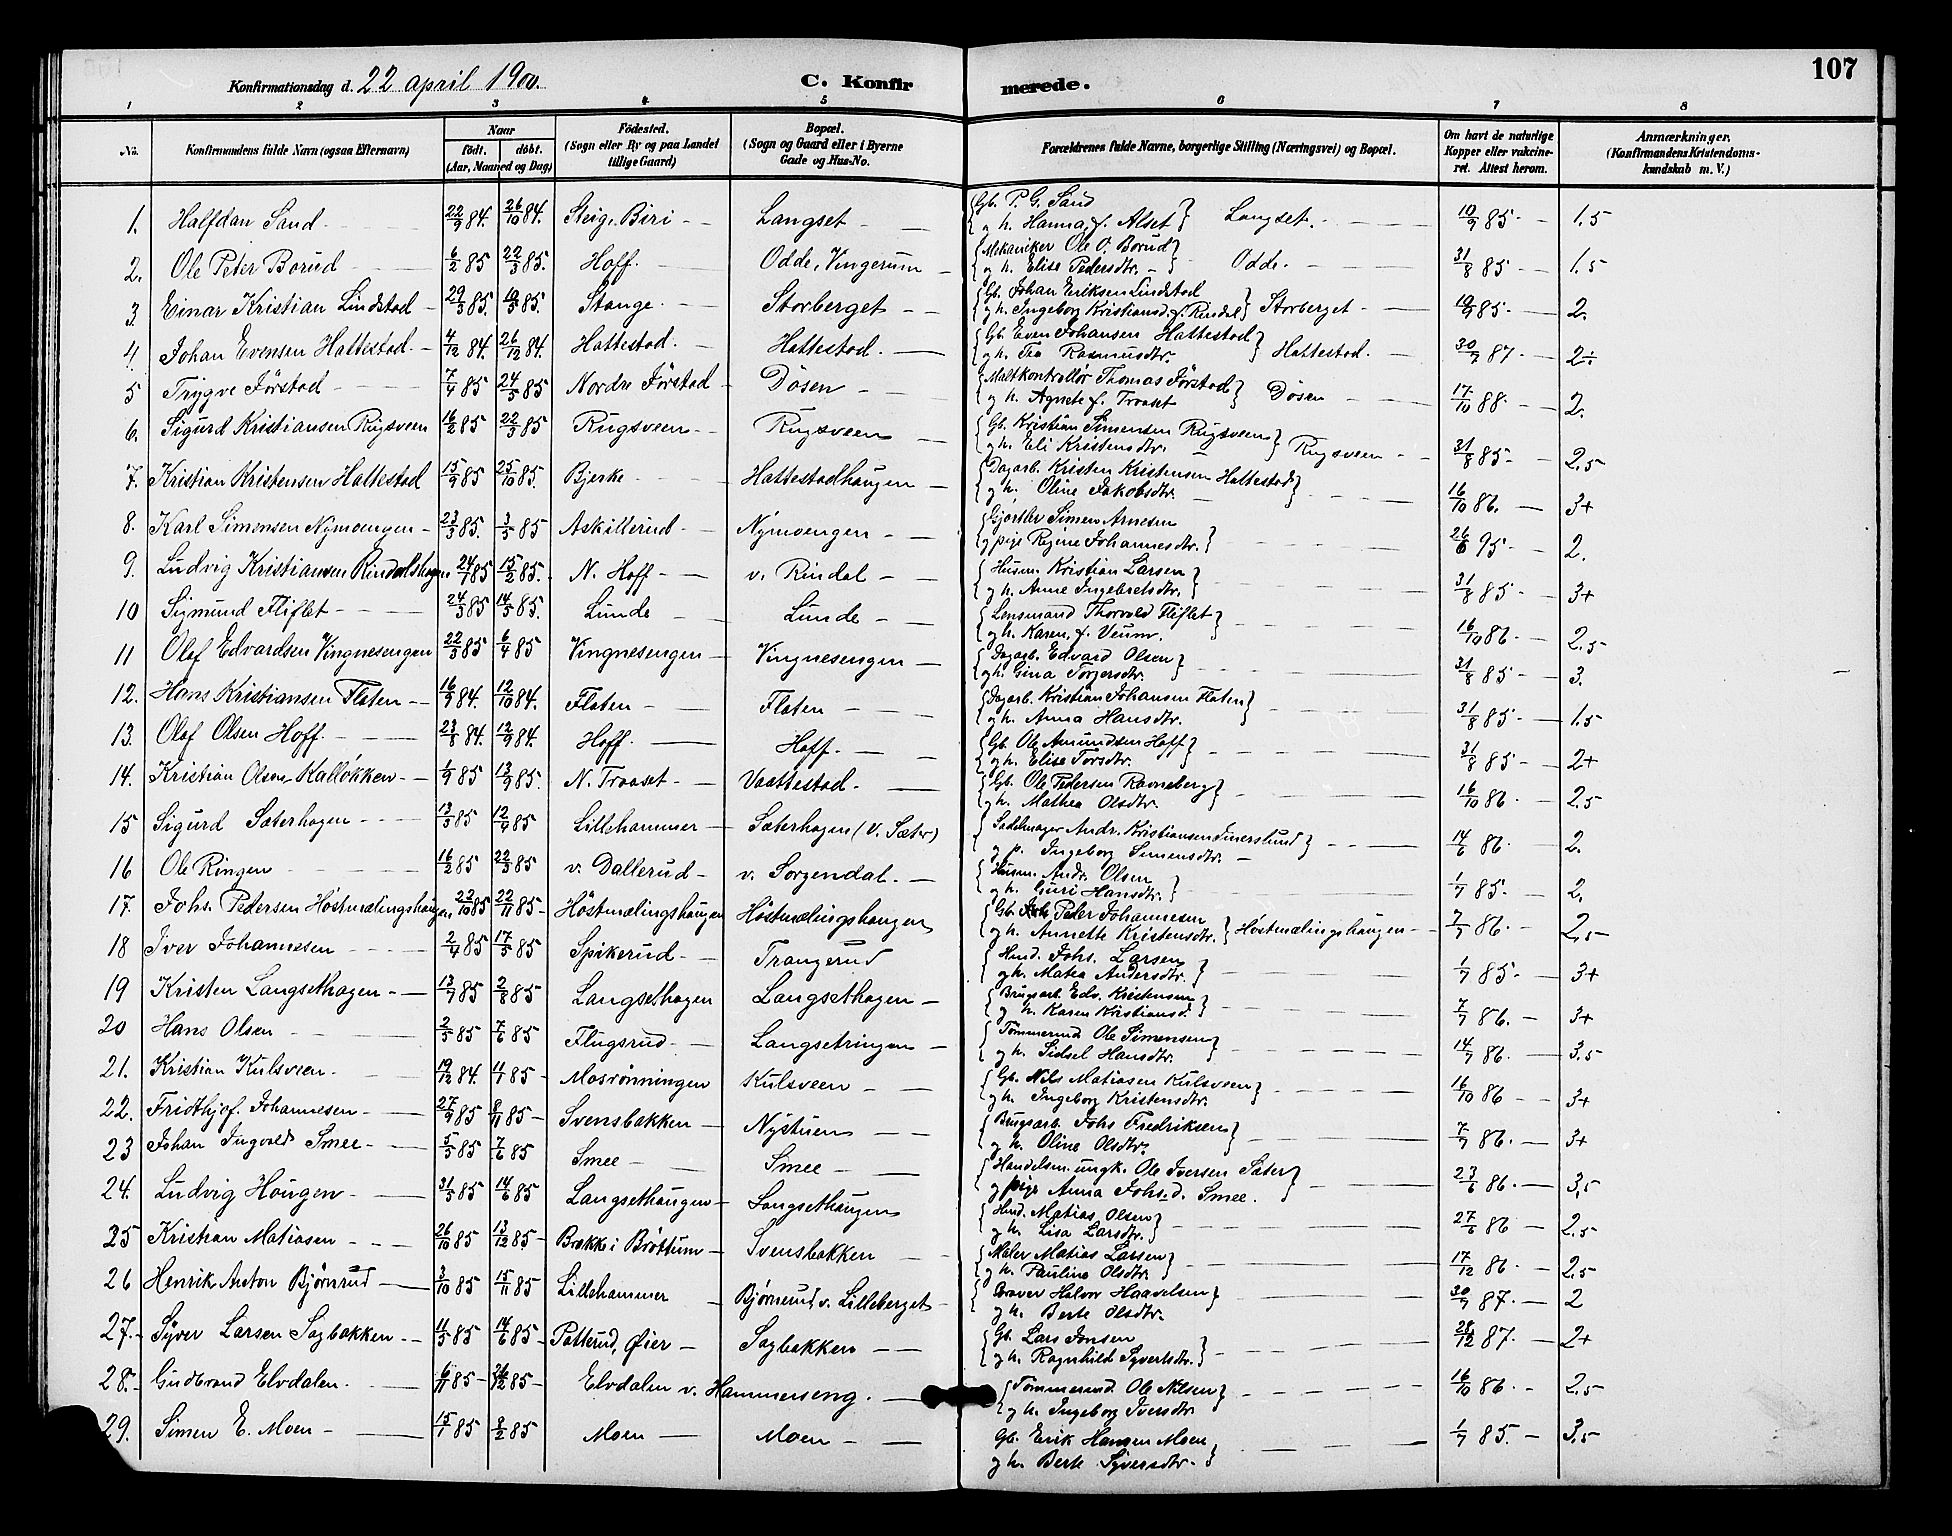 107
Konfirmationsdag d. 22 april 1900.
C. Konfirmerede.
1 2 3 4 5 6 7 8
No.
Konfirmandens fulde Navn (ogsaa Efternavn)
Naar
født. døbt.
(Aar, Maaned og Dag)
Födested.
(Sogn eller By og paa Landet
tillige Gaard)
Bopæl.
(Sogn og Gaard eller i Byerne
Gade og Hus-No.
Forældrenes fulde Navne, borgerlige Stilling (Næringsvei) og Bopæl.
Om havt de naturlige
Kopper eller vakcine-
ret. Attest herom.
Anmærkninger,
(Konfirmandens Kristendoms-
kundskab m. V.)
1. Halfdan Sand 22/9 84. 26/10 84. Steig, Biri Langset {Gb. P. G. Sand
og h. Hanna, f. Alset} Langset. 10/9 85 1.5
2. Ole Peter Borud 6/2 85 22/3 85. Hoff. Odde, Vingerum {Mekaniker Ole O. Borud
og h. Elise Pedersdtr.} Odde. 31/8 85 1.5
3. Einar Kristian Lindstad 29/3 85. 10/5 85. Stange Storberget {Gb. Johan Eriksen Lindstad
og h. Ingeborg Kristiansd. f. Rindal} Storberget 10/9 85 2.
4. Johan Evensen Hattestad. 4/12 84. 26/12 84. Hattestad. Hattestad. {Gb. Even Johansen Hattestad
og h. Rasmusdtr.} Hattestad. 30/7 87 2÷
5 Trygve Jørstad 7/4 85 24/5 85 Nordre Jørstad Døsen {Maltkontrollør Thomas Jørstad
og h. Agnete f. Traaset} Døsen 17/10 88. 2.
6. Sigurd Kristiansen Rugsveen 16/2 85 22/3 85 Rugsveen Rugsveen {Gb. Kristian Simensen Rugsveen
og h. Eli Kristensdtr.} Rugsveen 31/8 85 2.5
7. Kristian Kristensen Hattestad 15/9 85 25/10 85. Bjerke Hattestadhaugen {Dagarb. Kristen Kristensen Hattestad
og h. Oline Jakobsdtr.} 16/10 86. 3+
8. Karl Simensen Nymoengen 23/3 85. 3/5 85 Askillerud Nymoengen {Gjørtler Simen Arnesen
og pige Regine Johannesdtr.} 26/6 95 2.
9. Ludvig Kristiansen Rindalshagen 24/1 85 15/2 85. N. Hoff v. Rindal {Husm. Kristian Larsen
og h. Anne Ingebretsdtr.} 31/8 85 3+
10 Sigmund Fliflet 24/3 85 14/5 85. Lunde Lunde {Lensmand Thorvald Fliflet
og h. Karen, f. Veum.} 16/10 86 2.5
11 Olaf Edvardsen Vingnesengen 22/3 85 6/4 85 Vingnesengen Vingnesengen {Dagarb. Edvard Olsen
og h. Gina Torgersdtr.} 31/8 85 3.
12. Hans Kristiansen Flaten 16/9 84. 12/10 84. Flaten Flaten {Dagarb. Kristian Johansen Flaten
og h. Anna Hansdtr.} 31/8 85 1.5
13. Olaf Olsen Hoff. 23/8 84. 12/9 84. Hoff. Hoff. {Gb. Ole Amundsen Hoff
og h. Elise Torsdtr.} 31/8 85 2+
14. Kristian Olsen Kalløkken 1/9 85 13/9 85. N. Traaset Vaattestad. {Gb. Ole Pedersen Ravneberg
og h. Mathea Olsdtr.} 16/10 86. 2.5
15 Sigurd Sæterhagen 13/3 85 12/4 85 Lillehammer Sæterhagen (v. Sæter) {Sadelmager Andr. Kristiansen
og p. Ingeborg Simensdtr.} 14/6 86. 2.
16 Ole Ringen 16/2 85 22/3 85 v. Dallerud v. Sorgendal. {Husm. Andr. Olsen
og h. Guri Hansdtr.} 1/7 85. 2.
17. Johs. Pedersen Høstmælingshaugen 22/10 85 22/11 85 Høstmælingshaugen Høstmælingshaugen {Gb. Peder Johannesen
og h. Annette Kristensdtr.} Høstmælingshaugen 7/7 86. 2.5
18 Iver Johannesen 2/4 85 17/5 85 Spikerud Trangerud {Husd. Johs. Larsen
og h. Matea Andersdtr.} 1/7 85 3+
19 Kristen Langsethagen 13/7 85 2/8 85 Langsethagen Langsethagen {Brugsarb. Edv. Kristensen
og h. Karen Kristiansd.} 7/7 86. 3+
20 Hans Olsen 2/5 85 7/6 85 Flugsrud Langsetringen {Tømmermd. Ole Simensen
og h. Sidsel Hansdtr.} 14/7 86. 3.5
21. Kristian Kulsveen 19/12 84. 11/1 85 Mosrønningen Kulsveen {Gb. Nils Matiasen Kulsveen
og h. Ingeborg Kristensdtr.} 16/10 86 3+
22. Fridthjof. Johannesen 27/9 85 8/11 85 Svensbakken Nystuen {Brugsarb. Johs Fredriksen
og h. Oline Olsdtr.} 7/7 86. 3+
23 Johan Ingvald Smee 5/5 85 7/6 85 Smee Smee {Handelsm. ungk. Ole Iversen Sæter
og pige Anna Johs.d. Smee.} 23/6 86. 3.5
24. Ludvig Haugen 31/5 85 14/6 85 Langsethaugen Langsethaugen {Husd. Matias Olsen
og h. Lisa Larsdtr.} 27/6 86 2.5
25 Kristian Matiasen 26/10 85 13/12 85 Brække i Brøttum Svensbakken {Maler Matias Larsen
og h. Pauline Olsdtr.} 17/12 86. 2.5
26 Henrik Anton Bjørnrud 3/10 85 15/11 85 Lillehammer Bjørnrud v. Lilleberget {Graver Halvor Haavelsen}
og h. Berte Olsdtr. 30/7 87. 2
27. Syver Larsen Sagbakken 11/5 85 14/6 85 Potterud, Øier Sagbakken {Gb. Lars Jonsen
og h. Ragnhild Syvertsdtr.} 28/12 87. 2+
28. Gudbrand Elvdalen. 6/11 85 26/12 85 Elvdalen v. Hammerseng. {Tømmermd. Ole Nilsen
og h. Ingeborg Iversdtr.} 16/10 86. 2.5
29. Simen E. Moen 15/1 85 8/2 85 Moen Moen Gb. Erik Hansen Moen
og h. Berte Syversdtr.} 1/7 85. 3.5